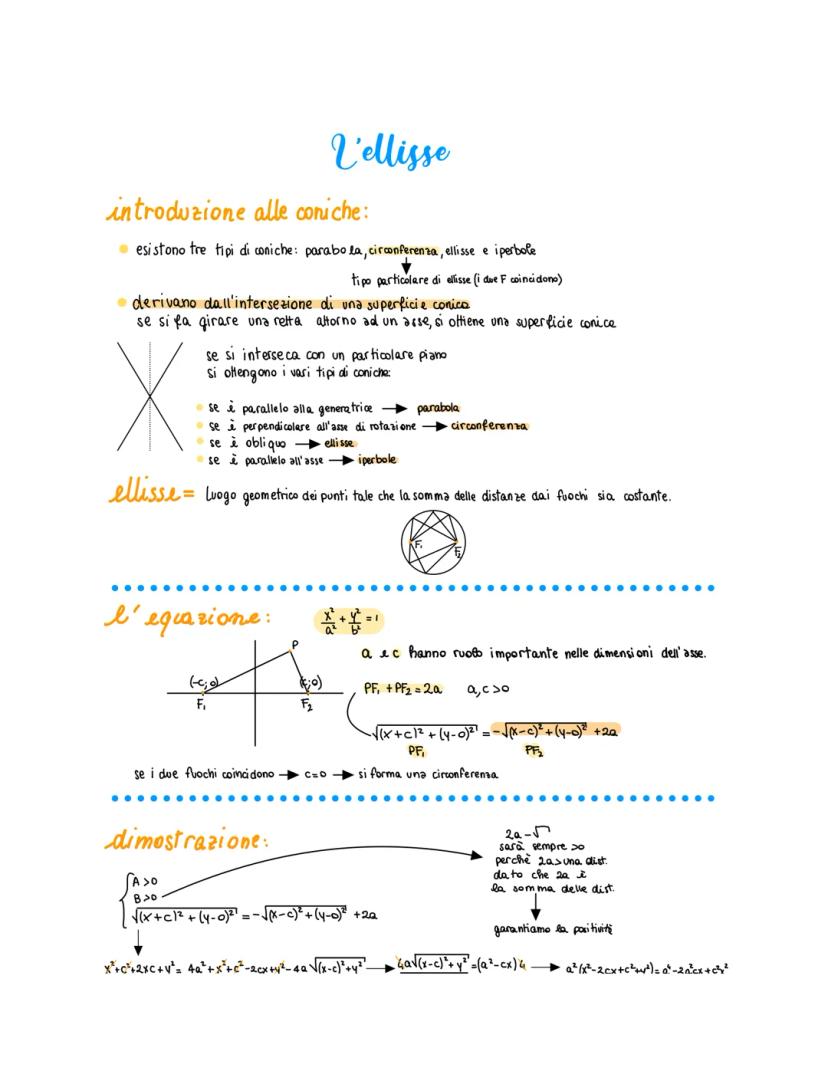 L'ellisse
introduzione alle coniche:
esistono tre tipi di coniche: parabola, circonferenza, ellisse e iperbole
tipo particolare di ellisse (i due F coincidono)
derivano dall'intersezione di una superficie conica
se si fa girare una retta attorno ad un asse, si ottiene una superficie conica
se si interseca con un particolare piano
si ottengono i vari tipi di coniche:
se è parallelo alla generatrice → parabola
se è perpendicolare all'asse di rotazione → circonferenza
se è obliquo → ellisse
se è parallelo all'asse → iperbole
ellisse = luogo geometrico dei punti tale che la somma delle distanze dai fuochi sia costante.
F₁ F₂
l'equazione: x²/a² + y²/b² = 1
P
a e c hanno ruolo importante nelle dimensioni dell'asse.
(-c;0) (c;0) PF₁ + PF₂ = 2a a,c>0
F₁ F₂
√(x+c)² + (y-0)² = -√(x-c)² + (y-0)² + 2a
PF₁ PF₂
se i due fuochi coincidono → c=0 → si forma una circonferenza
dimostrazione:
2a-√
sarà sempre >0
perchè 2a>una dist.
dato che 2a è
la somma delle dist.
garantiamo la positività
A>0
B>0
√(x+c)² + (y-0)² = -√(x-c)² + (y-0)² + 2a
x²+c²+2xc+y² = 4a²+x²+c²-2cx+y²-4a√(x-c)²+y² → 4a√(x-c)²+y² = (a²-cx)4 → a²(x²-2cx+c²+y²) = a⁴-2a²cx+c²x²